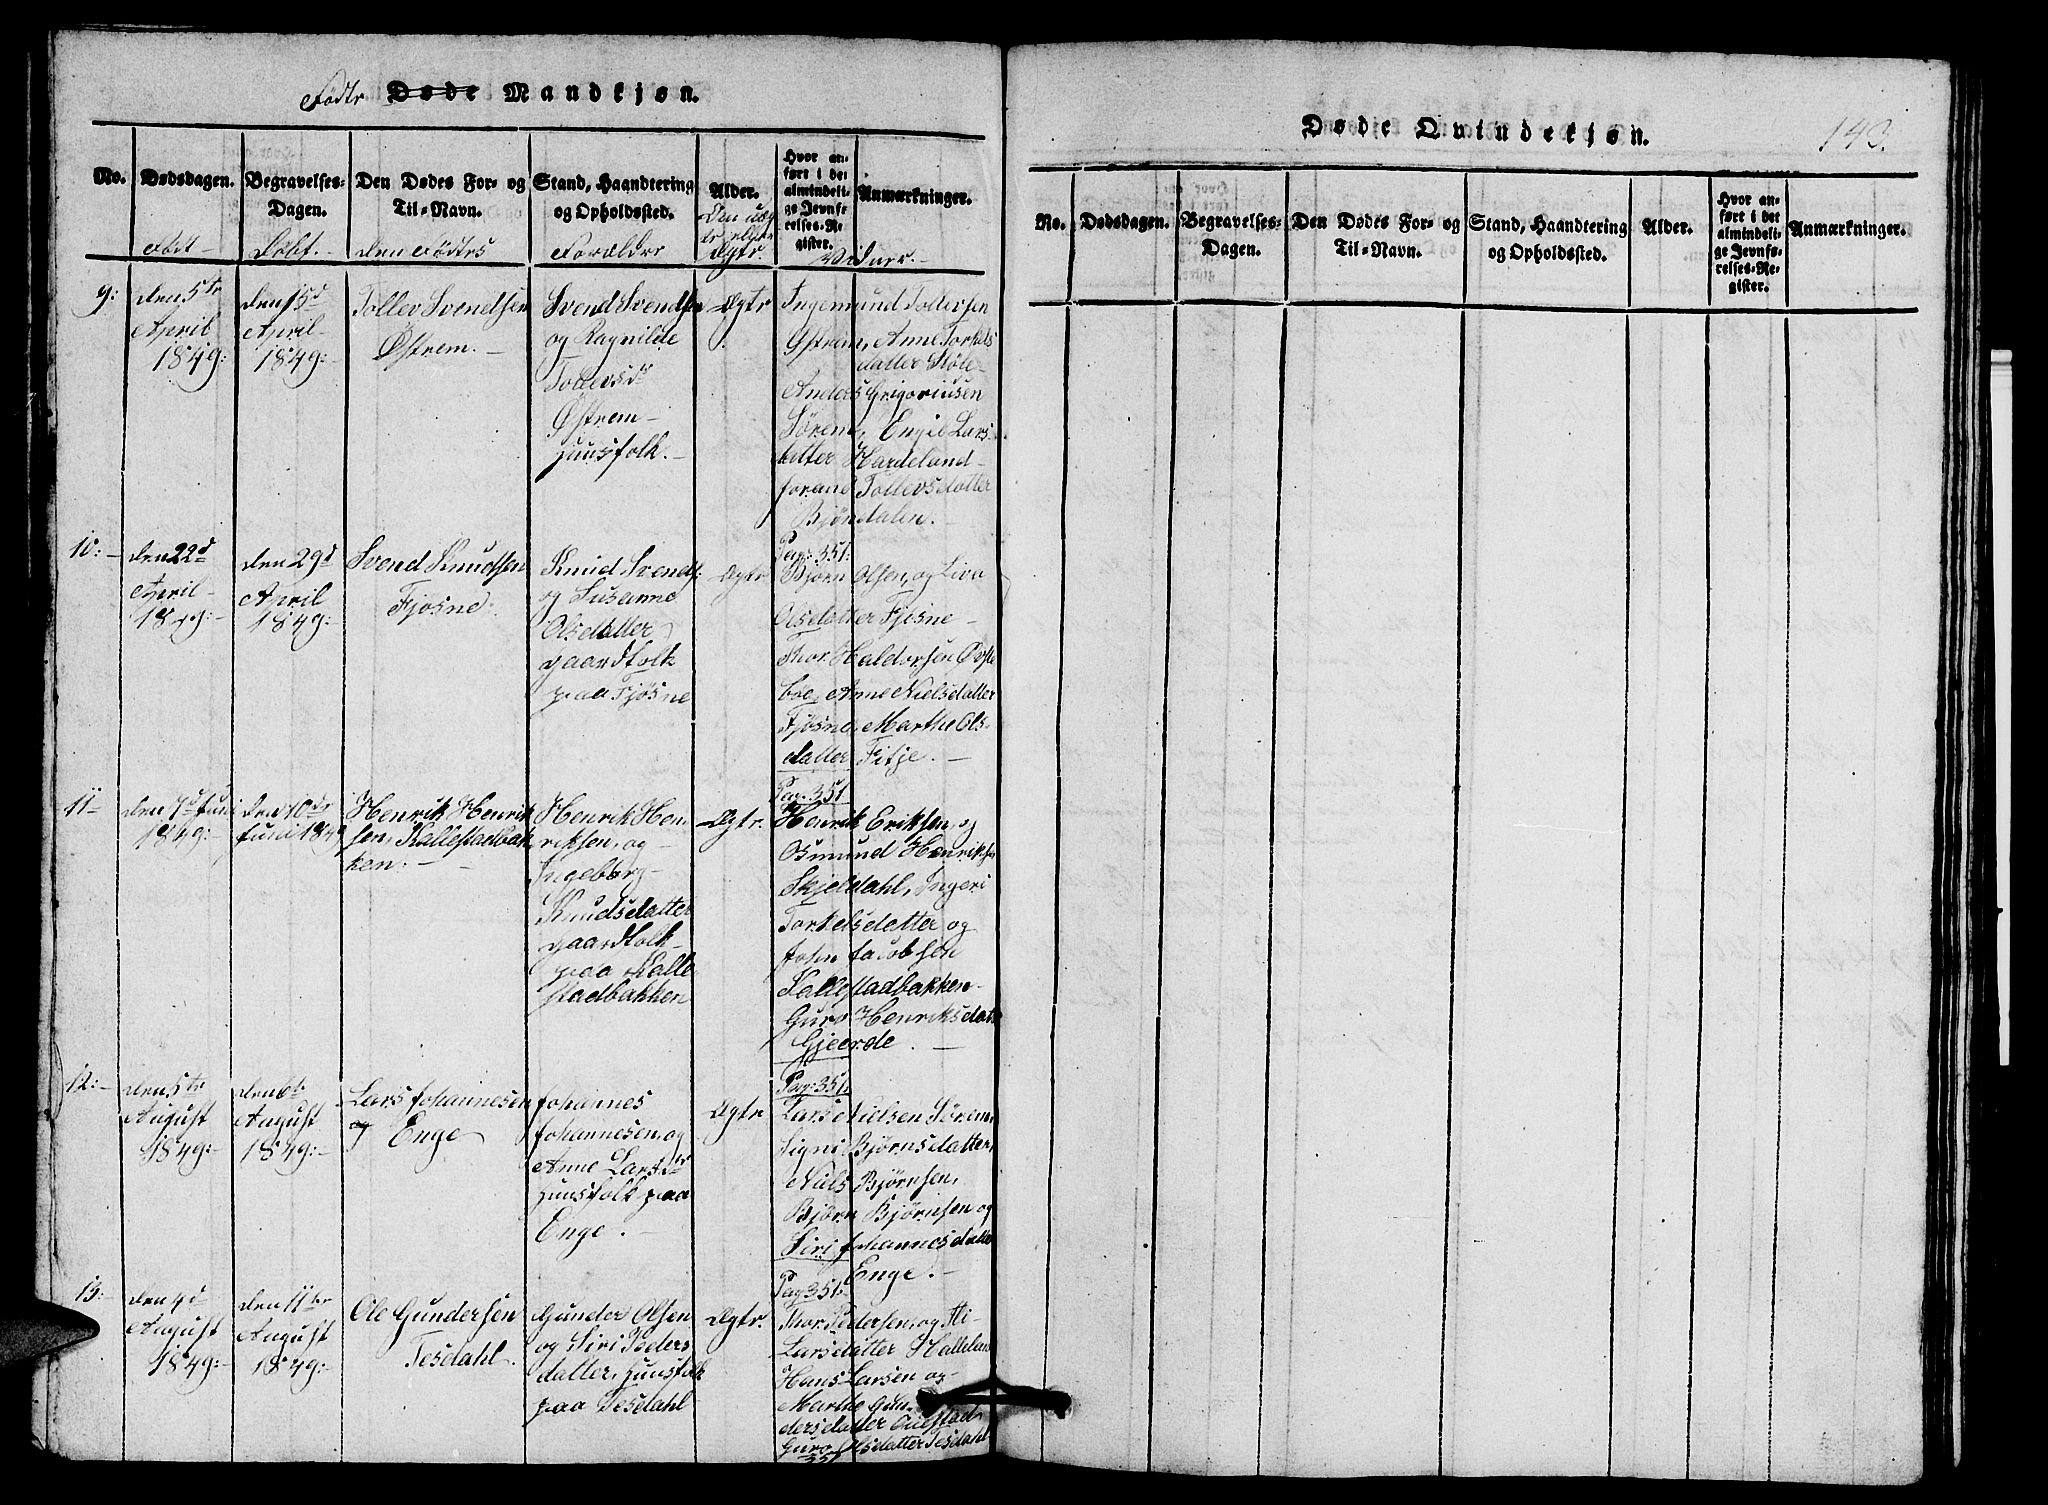 Fødte Døde Mandkjøn.
No.
Dødsdagen.
Født
Begravelses-
Dagen.
Døbt.
Den Dødes For- og
Til-Navn.
den Fødtes
Stand, Haandtering
og Opholdssted.
Forældre
Alder.
Ægte.
Hvor an-
ført i det
almindeli-
ge Jevnfø-
relses-Re-
gister.
Anmærkninger.
Vidner.
9:
den 5te
April
1849:
den 15d
April
1849:
Tollev Svendsen
Østrem.
Svend Svendsen
og Ragnilde
Tollevsd
Østrem
huusfolk.
Ægte
Ingemund Tollevsen
Østrem, Anne Torkels
datter Støle
Anders Grigoriusen
Sørem, Engil Lars
datter Hardeland
Tollevsdatter
Bjøndalen.
10:
den 22d
April
1849:
den 29d
April
1849:
Svend Knudsen
Fjøsne
Knud Svends:
og Susanne
Olsdatter
gaardfolk
paa Fjøsne
Ægte
Pag: 351:
Bjørn Olsen, og Liva
Olsdatter Fjøsne
Thor Haldorsen Øvste
boe, Anne Nielsdatter
Fjøsne, Marthe Ols-
datter Fitje.
11
den 7d Juni
1849:
den 10de
Juni 1849
Henrik Henrik
sen, Kallestadbak
ken.
Henrik Hen
riksen, og
Ingeborg
Knudsdatter
gaardfolk
paa Kalle
stadbakken
Ægte.
Pag. 351
Henrik Eriksen, og
Osmund Henriksen
Skjeldahl, Ingeri
Torkelsdatter og
John Jacobsen
Kallestadbakken
Guro Henriksdatt
Gjeerde.
12:
den 5te
August
1849:
den 6te
August
1849:
Lars Johannesen
Enge
Johannes
Johannesen, og
Anne Larsdr
huusfolk paa
Enge.
Ægte
Pag: 351:
Lars Nielsen Sørem,
Signi Bjørnsdatter,
Niels Bjørnsen,
Bjørn Bjørnsen og
Siri Johannesdatter
Enge.
13:
den 4d
August
1849:
den 11te
August
1849:
Ole Gundersen
Tesdahl.
Gunder Olsen
og Siri Peders
datter, huusfolk
paa Tesdahl
Ægte.
Pag 351:
Thor Pedersen, og
Larsdatter Halleland
Hans Larsen og
Marthe Gun
dersdatter Oulestad
Guro Olsdatter Tesdahl
351
Døde Qvindekjøn.
143.
No.
Dødsdagen.
Begravelses-
Dagen.
Den Dødes For- og
Til-Navn.
Stand, Haandtering
og Opholdssted.
Alder.
Hvor an-
ført i det
almindeli-
ge Jevnfø-
relses-Re-
gister.
Anmærkninger.